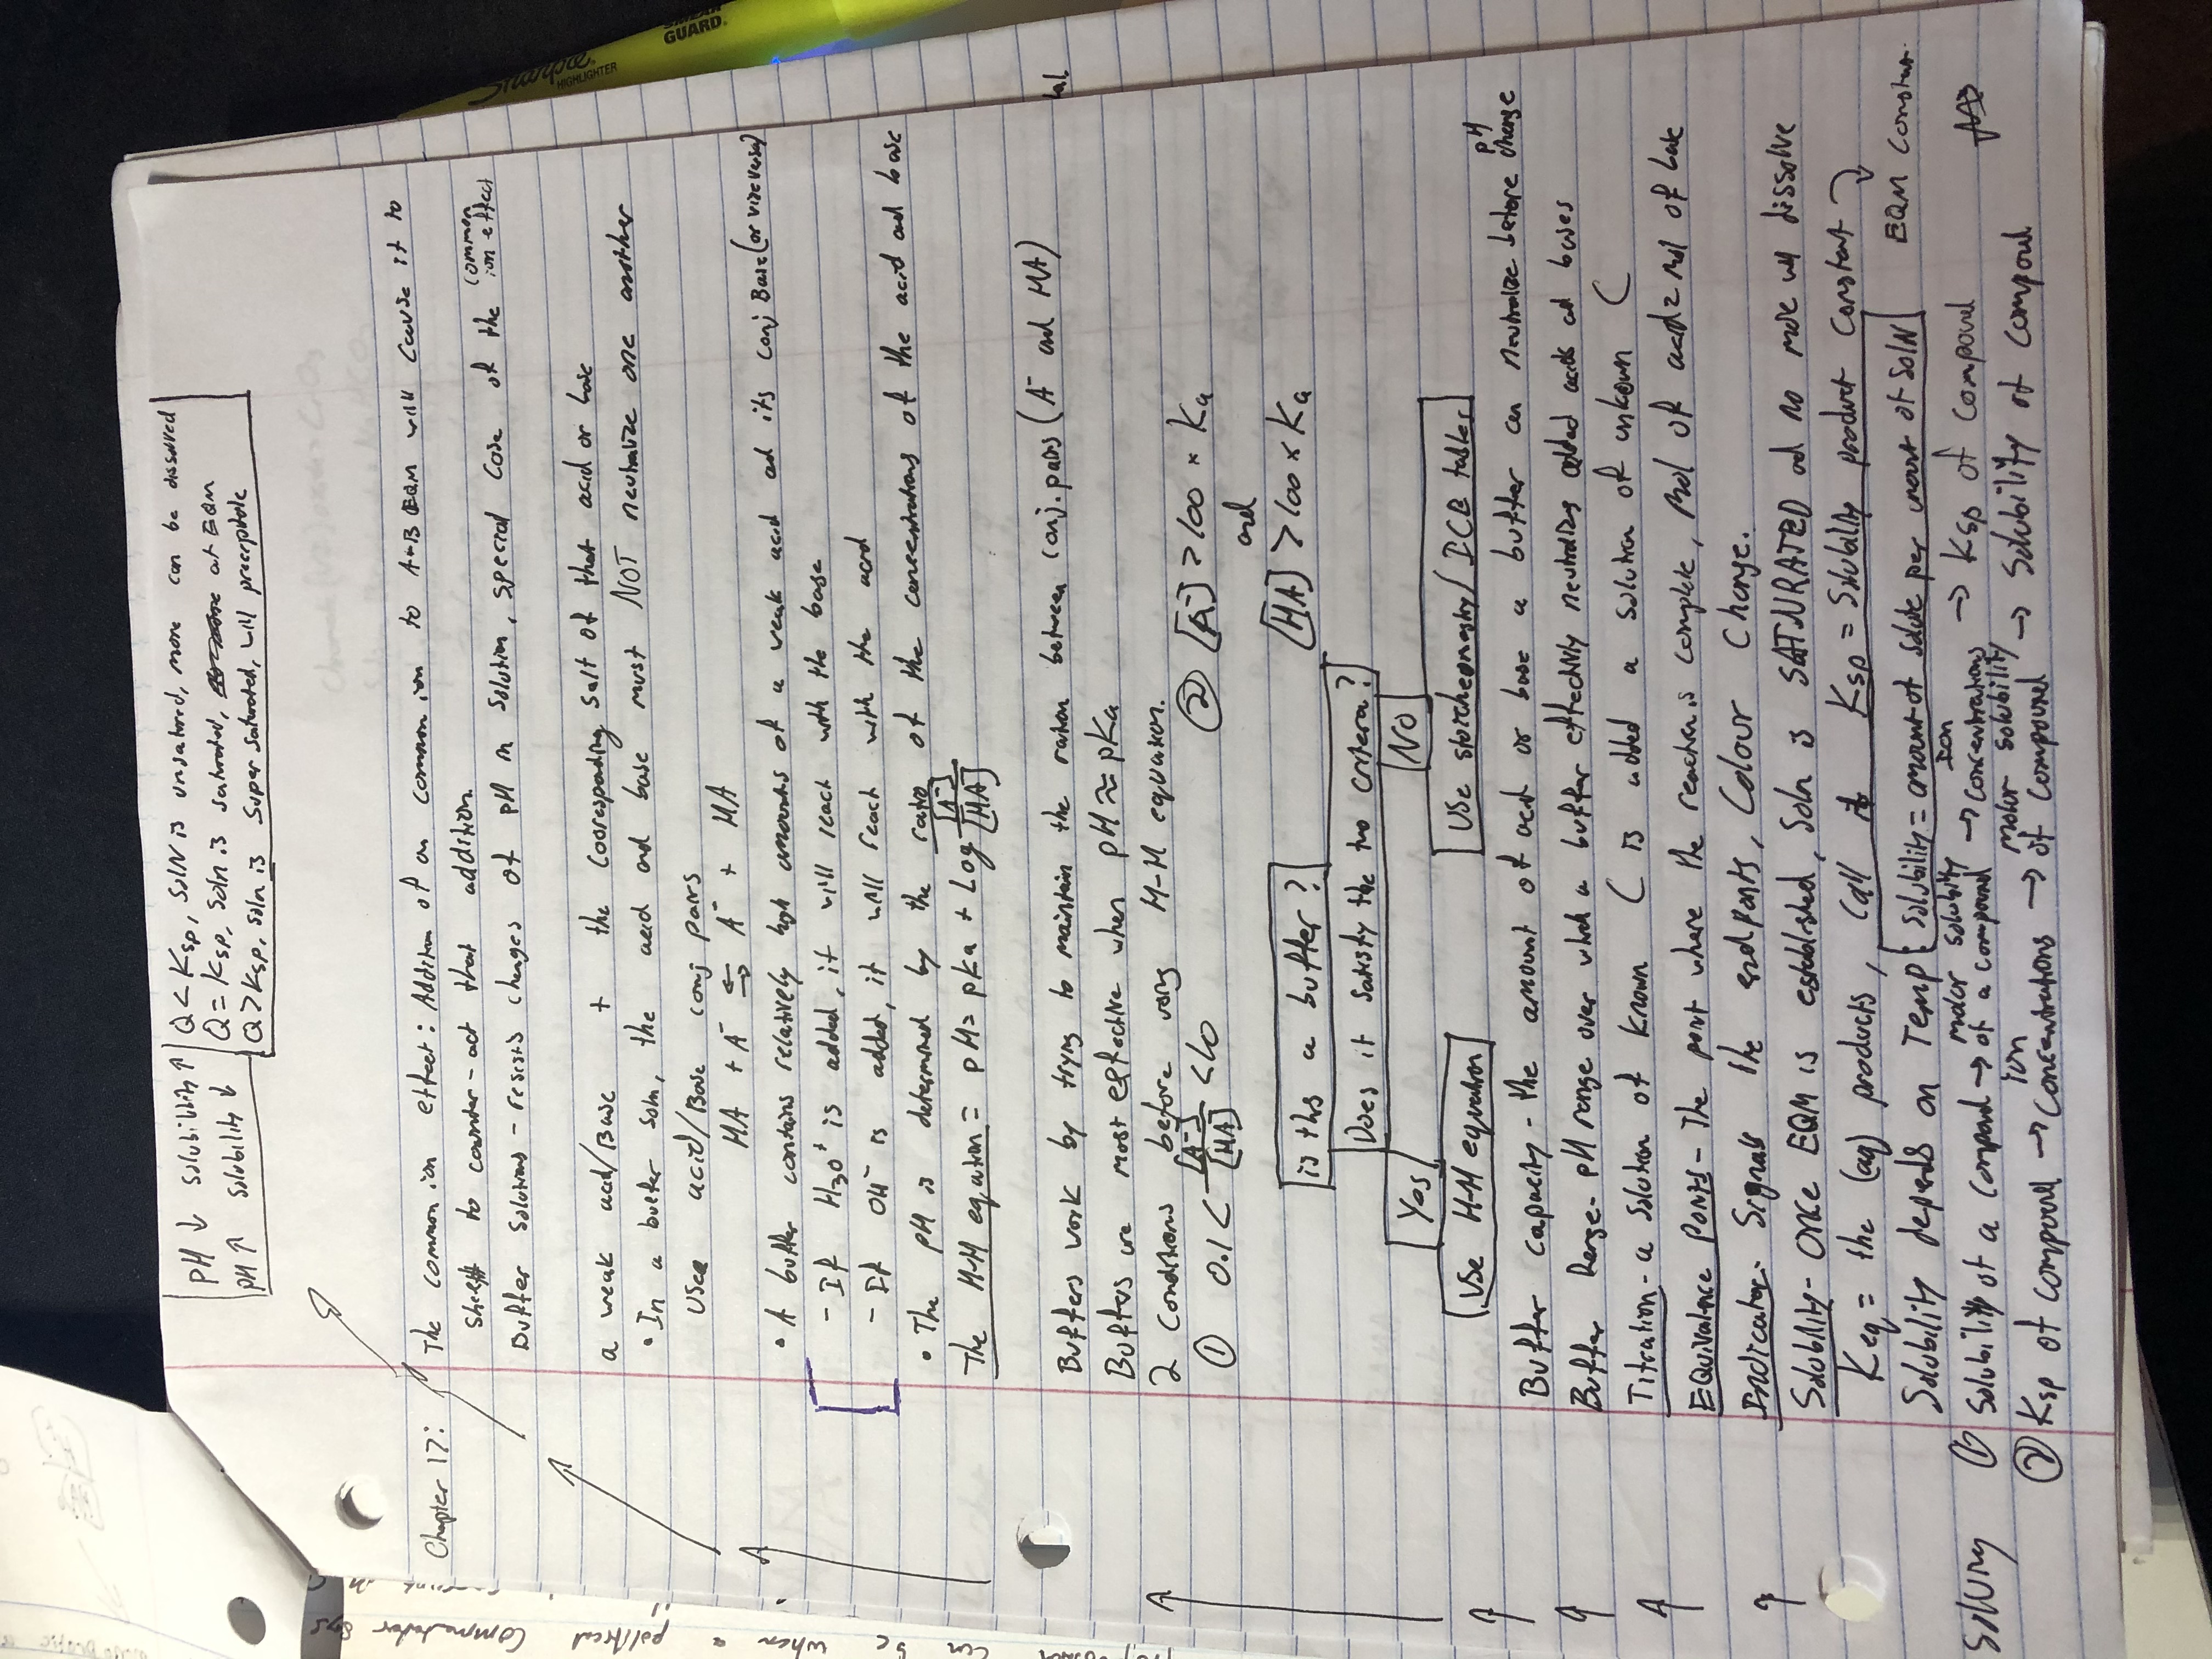 PH ↓ solubility ↑
PH ↑ solubility ↓
Q < Ksp, SolN is unsatured, more can be dissolved
Q = Ksp, soln is saturated, at EQM
Q > Ksp, soln is super saturated, will precipitate
Chapter 17:
The common ion effect: Addition of an common ion to A+B EQM will cause it to
shift to counter-act that addition.
Buffer solutions - resists changes of pH in solution, special case of the common ion effect
a weak acid/Base + the cooresponding salt of that acid or base
• In a buffer soln, the acid and base must NOT neutralize one another
Use acid/Base conj pairs
HA + A⁻ ⇌ A⁻ + HA
• A buffer contains relatively high amounts of a weak acid and its conj Base (or vize versa)
- If H₃O⁺ is added, it will react with the base
- If OH⁻ is added, it will react with the acid
• The pH is determined by the ratio of the concentrations of the acid and base
The H-H equation = pH = pKa + Log [A⁻]/[HA]
Buffers work by trying to maintain the ration between conj. pairs (A⁻ and HA)
Buffers are most effective when pH ≈ pKa
2 conditions before using H-H equation.
① 0.1 < [A⁻]/[HA] < 10
② [A⁻] > 100 × Ka
and
[HA] > 100 × Ka
is this a buffer?
Does it satisfy the two critera?
Yes
No
Use H-H equation
Use stoicheomestry/ICE tables
Buffer capacity - the amount of acid or base a buffer can neutralize before pH change
Buffer Range - pH range over which a buffer effectively neutralizes added acids ad bases
Titration - a solution of known C is added a solution of unkown C
EQuivalence Points - The point where the reaction is complete, mol of acid = mol of base
Indicator - Signals the endpoints, Colour Change.
Solubility - ONCE EQM is established, Soln is SATURATED ad no more will dissolve
Keq = the (aq) products, call it Ksp = Solubility product constant
EQM constant.
Solubility depends on Temp { Solubility = amount of solute per amount of solN
Solving
① Solubility of a compound → molar solubility of a compound → Ion concentrations → Ksp of compound
② Ksp of compound → ion concentrations → molar solubility of compound → solubility of compound
Sharpie
HIGHLIGHTER
SMEAR
GUARD
political
Commentator
when a